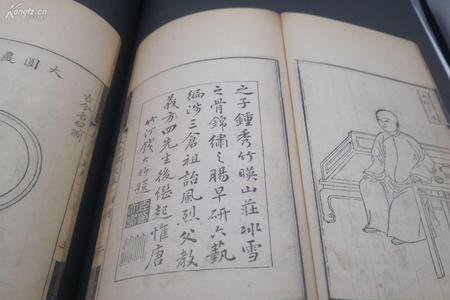 之子鍾秀竹暎山莊冰雪
之骨錦繡之腸早研六藝
徧涉三倉祖詒風烈父教
義方四先生後繼起惟唐
竹汀錢大昕題
大圓